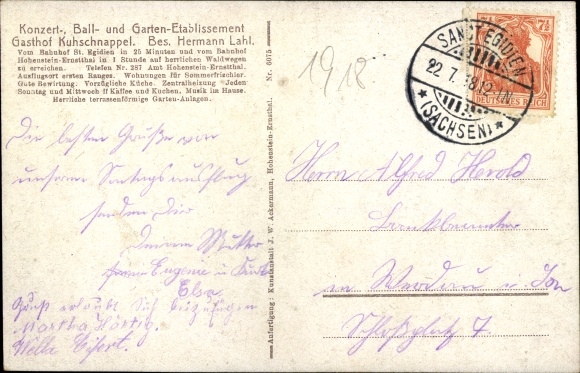 Konzert-, Ball- und Garten-Etablissement
Gasthof Kuhschnappel. Bes. Hermann Lahl.
Vom Bahnhof St. Egidien in 25 Minuten und vom Bahnhof
Hohenstein-Ernstthal in 1 Stunde auf herrlichen Waldwegen
zu erreichen. Telefon Nr. 287 Amt Hohenstein-Ernstthal.
Ausflugsort ersten Ranges. Wohnungen für Sommerfrischler.
Gute Bewirtung. Vorzügliche Küche. Zentralheizung. Jeden
Sonntag und Mittwoch ff Kaffee und Kuchen. Musik im Hause.
Herrliche terrassenförmige Garten-Anlagen.
Die besten Grüße von
unserem Sonntagsausflug
senden Dir
Deine Mutter
Eugenie u.
Elsa
erlaubt sich beizufügen
Martha Härtig.
Anfertigung: Kunstanstalt J. W. Ackermann, Hohenstein-Ernstthal. Nr. 6075
1918
SANCT EGIDIEN
22.7.18.12-1N.
* (SACHSEN) *
7½ 7½
DEUTSCHES REICH
Herrn Alfred Herold
Bankbeamter
in Werdau i. Sa
Schloßplatz 7